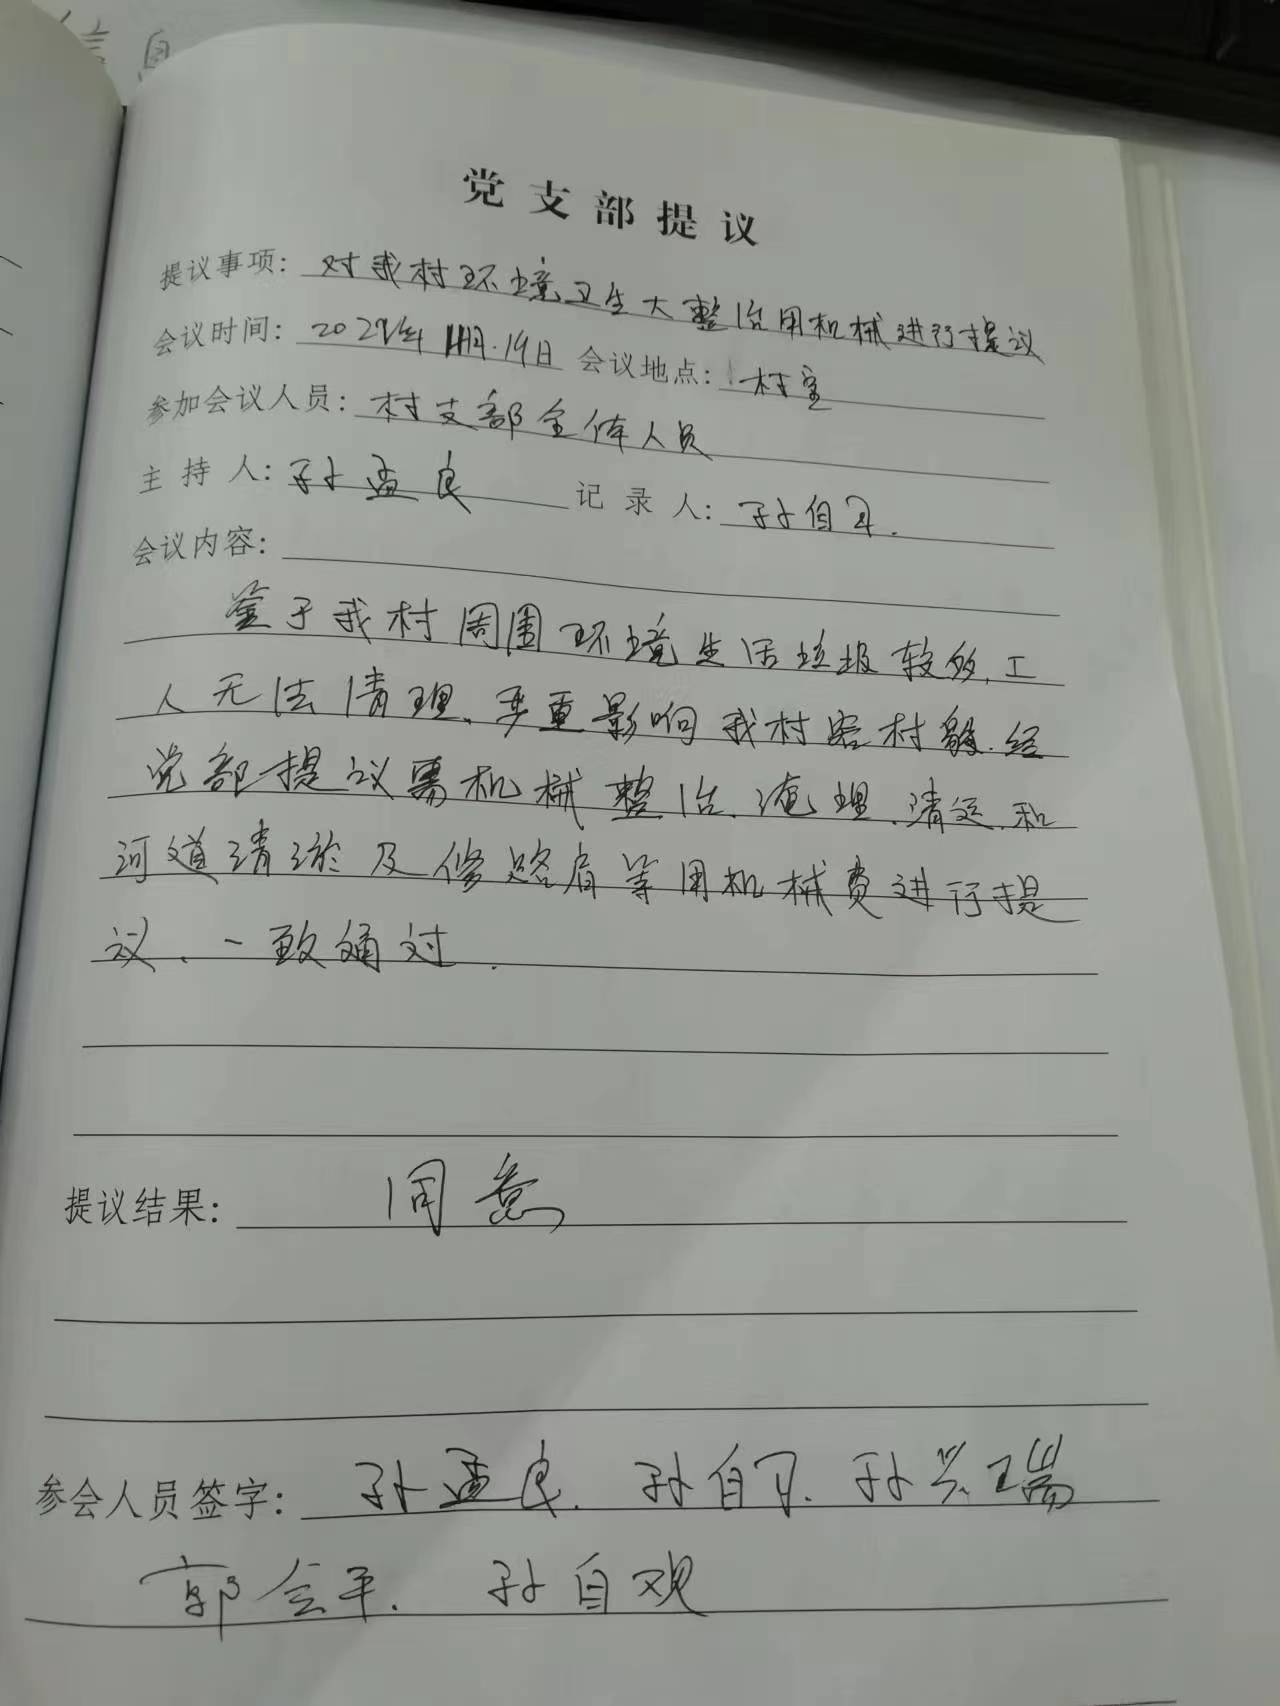 信息
党支部提议
提议事项：对我村环境卫生大整治用机械进行提议
会议时间：202 年 月.19日 会议地点：村室
参加会议人员：村支部全体人员
主持人：孙孟良 记录人：孙自
会议内容：
鉴于我村周围环境生活垃圾较多,工
人无法清理、严重影响我村容村貌.经
党部提议需机械整治、掩埋、清运、和
河道清淤及修路肩等用机械费进行提
议、一致通过.
提议结果：同意
参会人员签字：孙孟良.孙自 .孙兴瑞
郭会平.孙自观